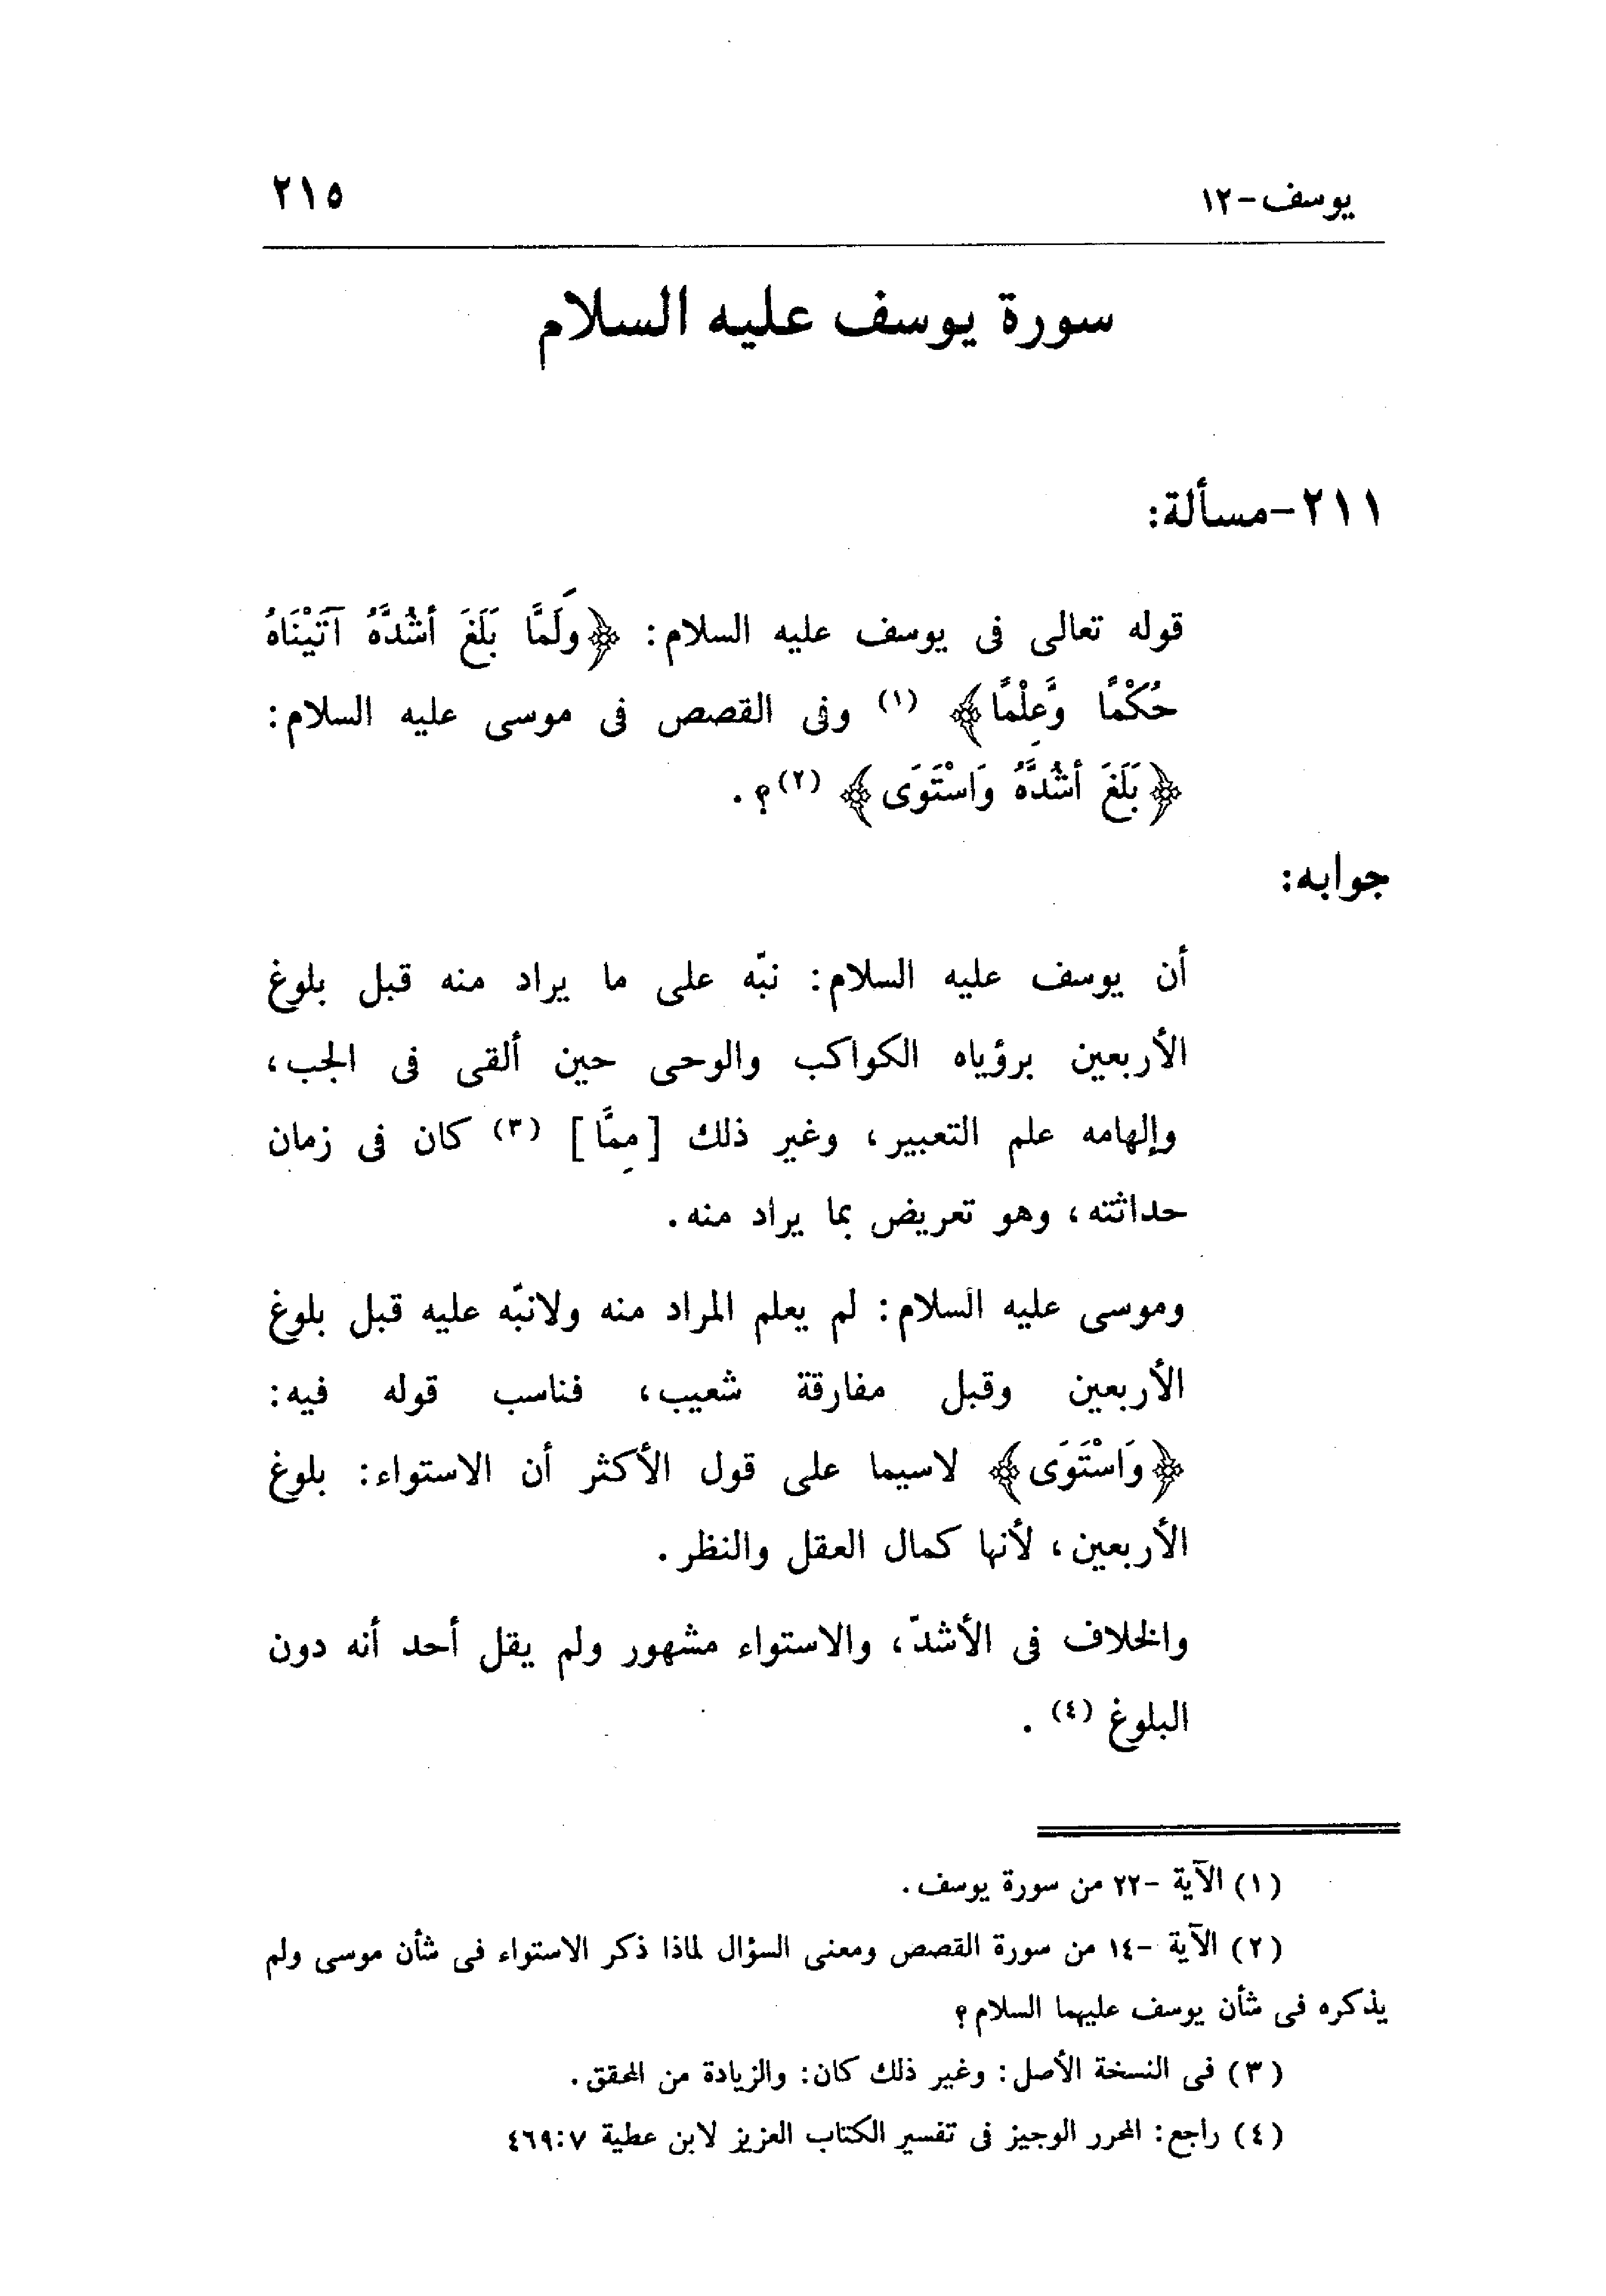 يوسف-١٢ ٢١٥
سورة يوسف عليه السلام
٢١١-مسألة:
قوله تعالى فى يوسف عليه السلام: ﴿وَلَمَّا بَلَغَ أَشُدَّهُ آتَيْنَاهُ
حُكْمًا وَّعِلْمًا﴾ (١) وفى القصص فى موسى عليه السلام:
﴿بَلَغَ أَشُدَّهُ وَاسْتَوَى﴾ (٢)؟.
جوابه:
أن يوسف عليه السلام: نبّه على ما يراد منه قبل بلوغ
الأربعين برؤياه الكواكب والوحى حين ألقى فى الجب،
وإلهامه علم التعبير، وغير ذلك [ممَّا] (٣) كان فى زمان
حداثته، وهو تعريض بما يراد منه.
وموسى عليه السلام: لم يعلم المراد منه ولانبّه عليه قبل بلوغ
الأربعين وقبل مفارقة شعيب، فناسب قوله فيه:
﴿وَاسْتَوَى﴾ لاسيما على قول الأكثر أن الاستواء: بلوغ
الأربعين، لأنها كمال العقل والنظر.
والخلاف فى الأشدّ، والاستواء مشهور ولم يقل أحد أنه دون
البلوغ (٤).
(١) الآية -٢٢ من سورة يوسف.
(٢) الآية -١٤ من سورة القصص ومعنى السؤال لماذا ذكر الاستواء فى شأن موسى ولم
يذكره فى شأن يوسف عليهما السلام؟
(٣) فى النسخة الأصل: وغير ذلك كان: والزيادة من المحقق.
(٤) راجع: المحرر الوجيز فى تفسير الكتاب العزيز لابن عطية ٤٦٩:٧